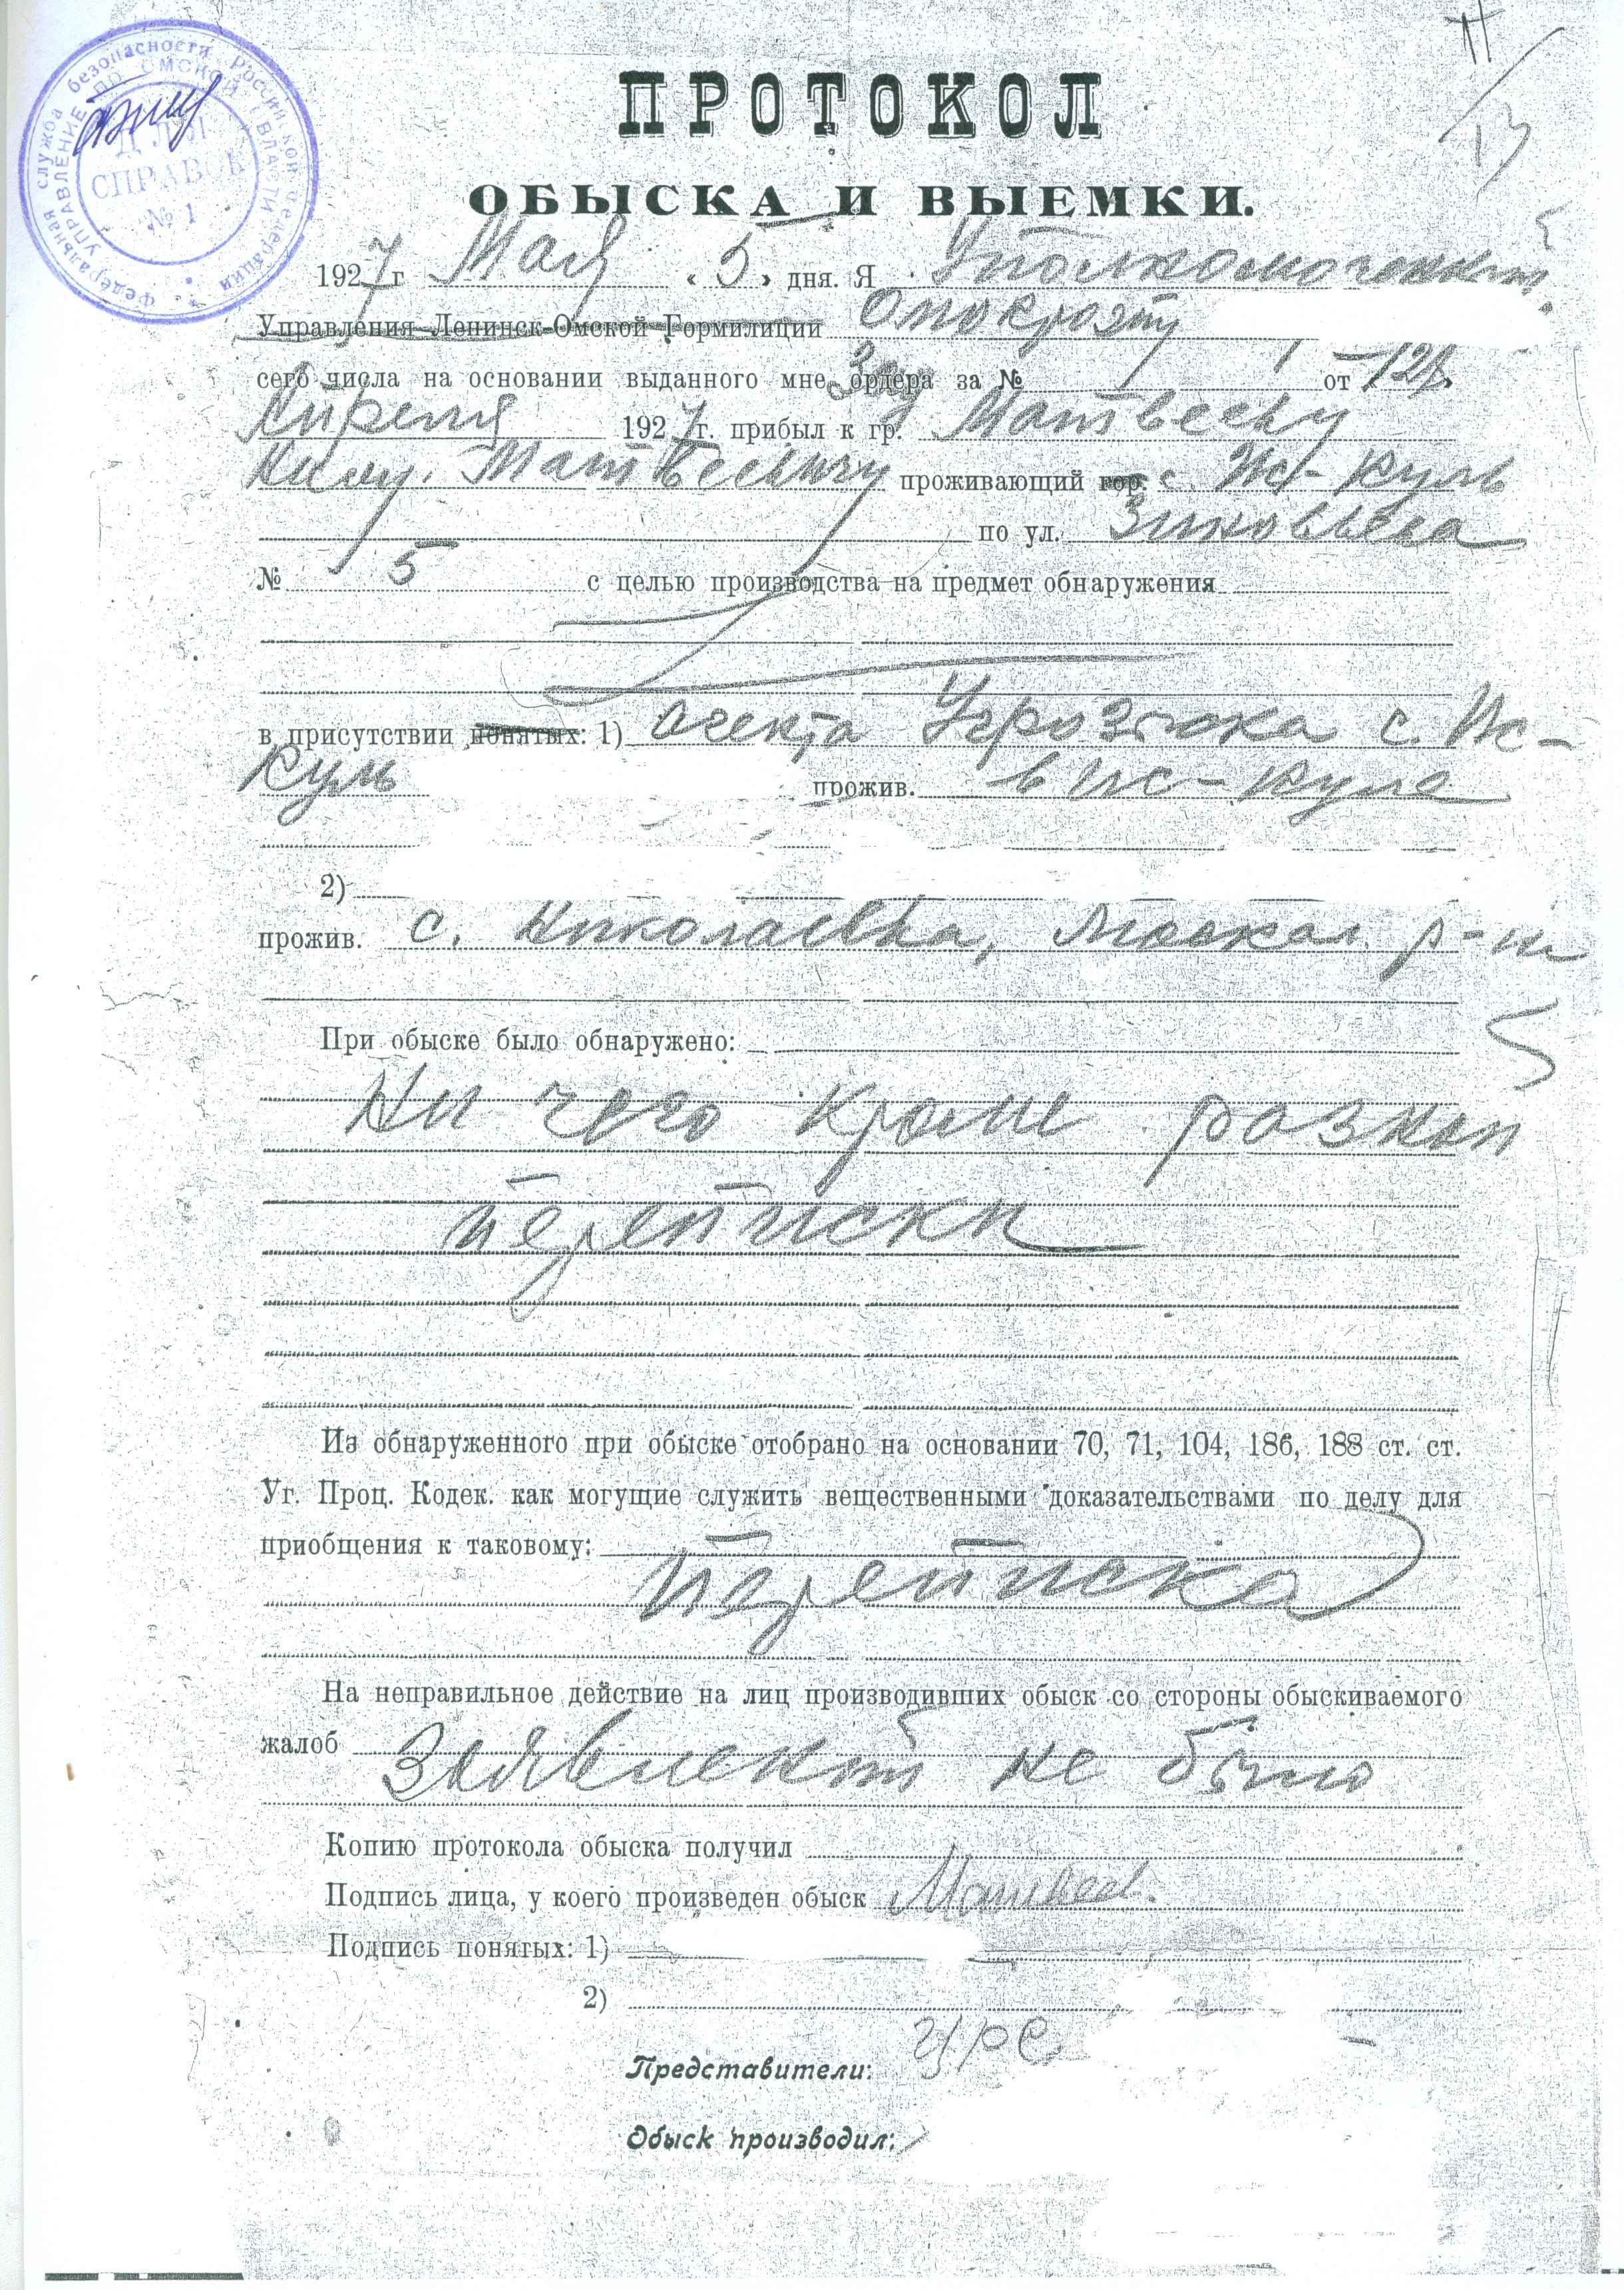 Федеральная служба безопасности Российской Федерации
УПРАВЛЕНИЕ ПО ОМСКОЙ ОБЛАСТИ
ДЛЯ
СПРАВОК
№ 1
ПРОТОКОЛ
ОБЫСКА И ВЫЕМКИ.
1927 г Мая « 5 » дня. Я Уполномоченный
Управления Ленинск-Омской Гормилиции
сего числа на основании выданного мне ордера за № от 12
Апреля 1927 г. прибыл к гр. Матвееву
Матвеевичу проживающий гор. с. Ис-Куль
по ул. Зиновьева
№ 5 с целью производства на предмет обнаружения
в присутствии понятых: 1) агента Угрозыска с. Ис-
Куль прожив. в Ис-Куле
2)
прожив. с. Николаевка, р-на
При обыске было обнаружено:
Ни чего кроме разной
переписки
Из обнаруженного при обыске отобрано на основании 70, 71, 104, 186, 188 ст. ст.
Уг. Проц. Кодек. как могущие служить вещественными доказательствами по делу для
приобщения к таковому:
переписка
На неправильное действие на лиц производивших обыск со стороны обыскиваемого
жалоб Заявлений не было
Копию протокола обыска получил
Подпись лица, у коего произведен обыск Матвеев.
Подпись понятых: 1)
2)
Представители:
Обыск производил: